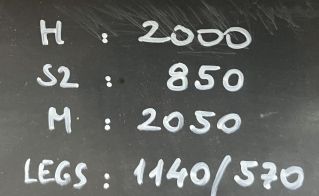 H : 2000
S2 : 850
M : 2050
LEGS : 1140/570